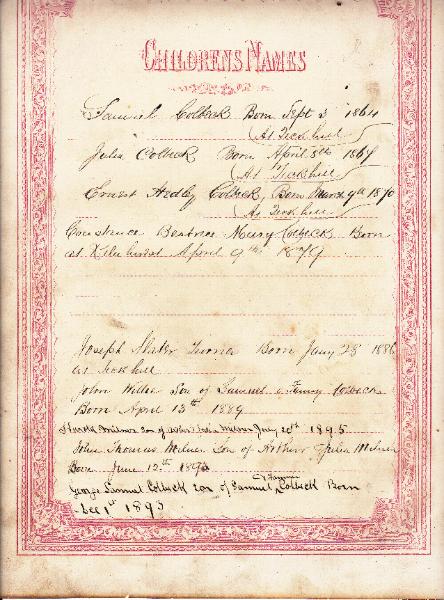 CHILDRENS NAMES
Samuel Colbeck Born Sept 3 1864
(At Tickhill
Julia Colbeck Born April 8th 1867
(At Tickhill
Ernest Hedley Colbeck, Born March 9th 1870
(At Tickhill
Constance Beatrice Mary Colbeck Born
at April 9th 1879
Joseph Slater Turner Born Jany 28 1886
at Tickhill
John Willie Son of Samuel & Fanny Colbeck
Born April 13th 1889
Harold Milner son of Julia Milner Jany 20th 1895
John Thomas Milner Son of Arthur & Julia Milner
Born June 12th 1892
George Samuel Colbeck son of Samuel & Fanny Colbeck Born
Dec 1st 1893